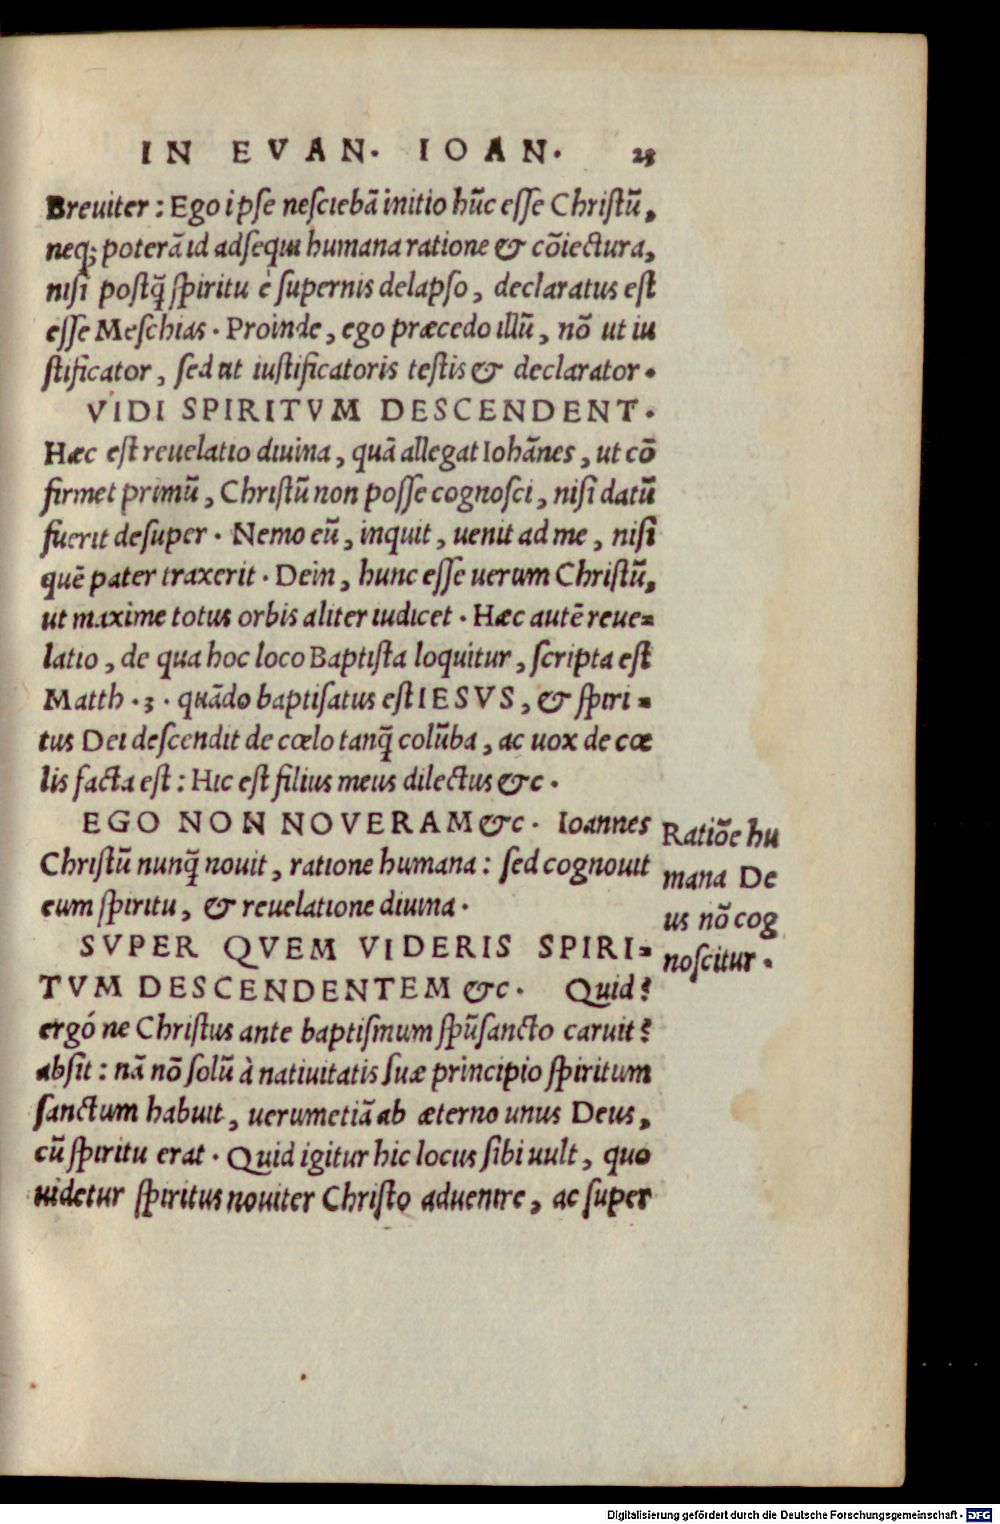 IN EVAN. IOAN. 25
Breuiter: Ego ipse nesciebā initio hūc esse Christū,
neq; poterā id adsequi humana ratione & cōiectura,
nisi postq̄ spiritu è supernis delapso, declaratus est
esse Meschias. Proinde, ego præcedo illū, nō ut iu
stificator, sed ut iustificatoris testis & declarator.
VIDI SPIRITVM DESCENDENT.
Hæc est reuelatio diuina, quā allegat Iohānes, ut cō
firmet primū, Christū non posse cognosci, nisi datū
fuerit desuper. Nemo eū, inquit, uenit ad me, nisi
quē pater traxerit. Dein, hunc esse uerum Christū,
ut maxime totus orbis aliter iudicet. Hæc autē reue=
latio, de qua hoc loco Baptista loquitur, scripta est
Matth. 3. quādo baptisatus est IESVS, & spiri=
tus Dei descendit de cœlo tanq̄ colūba, ac uox de cœ
lis facta est: Hic est filius meus dilectus &c.
EGO NON NOVERAM &c. Ioannes
Christū nunq̄ nouit, ratione humana: sed cognouit
eum spiritu, & reuelatione diuina.
Ratiōe hu
mana De
us nō cog
noscitur.
SVPER QVEM VIDERIS SPIRI=
TVM DESCENDENTEM &c. Quid?
ergó ne Christus ante baptismum spūsancto caruit?
absit: nā nō solū à natiuitatis suæ principio spiritum
sanctum habuit, uerumetiā ab æterno unus Deus,
cū spiritu erat. Quid igitur hic locus sibi uult, quo
uidetur spiritus nouiter Christo aduenire, ac super
Digitalisierung gefördert durch die Deutsche Forschungsgemeinschaft - DFG